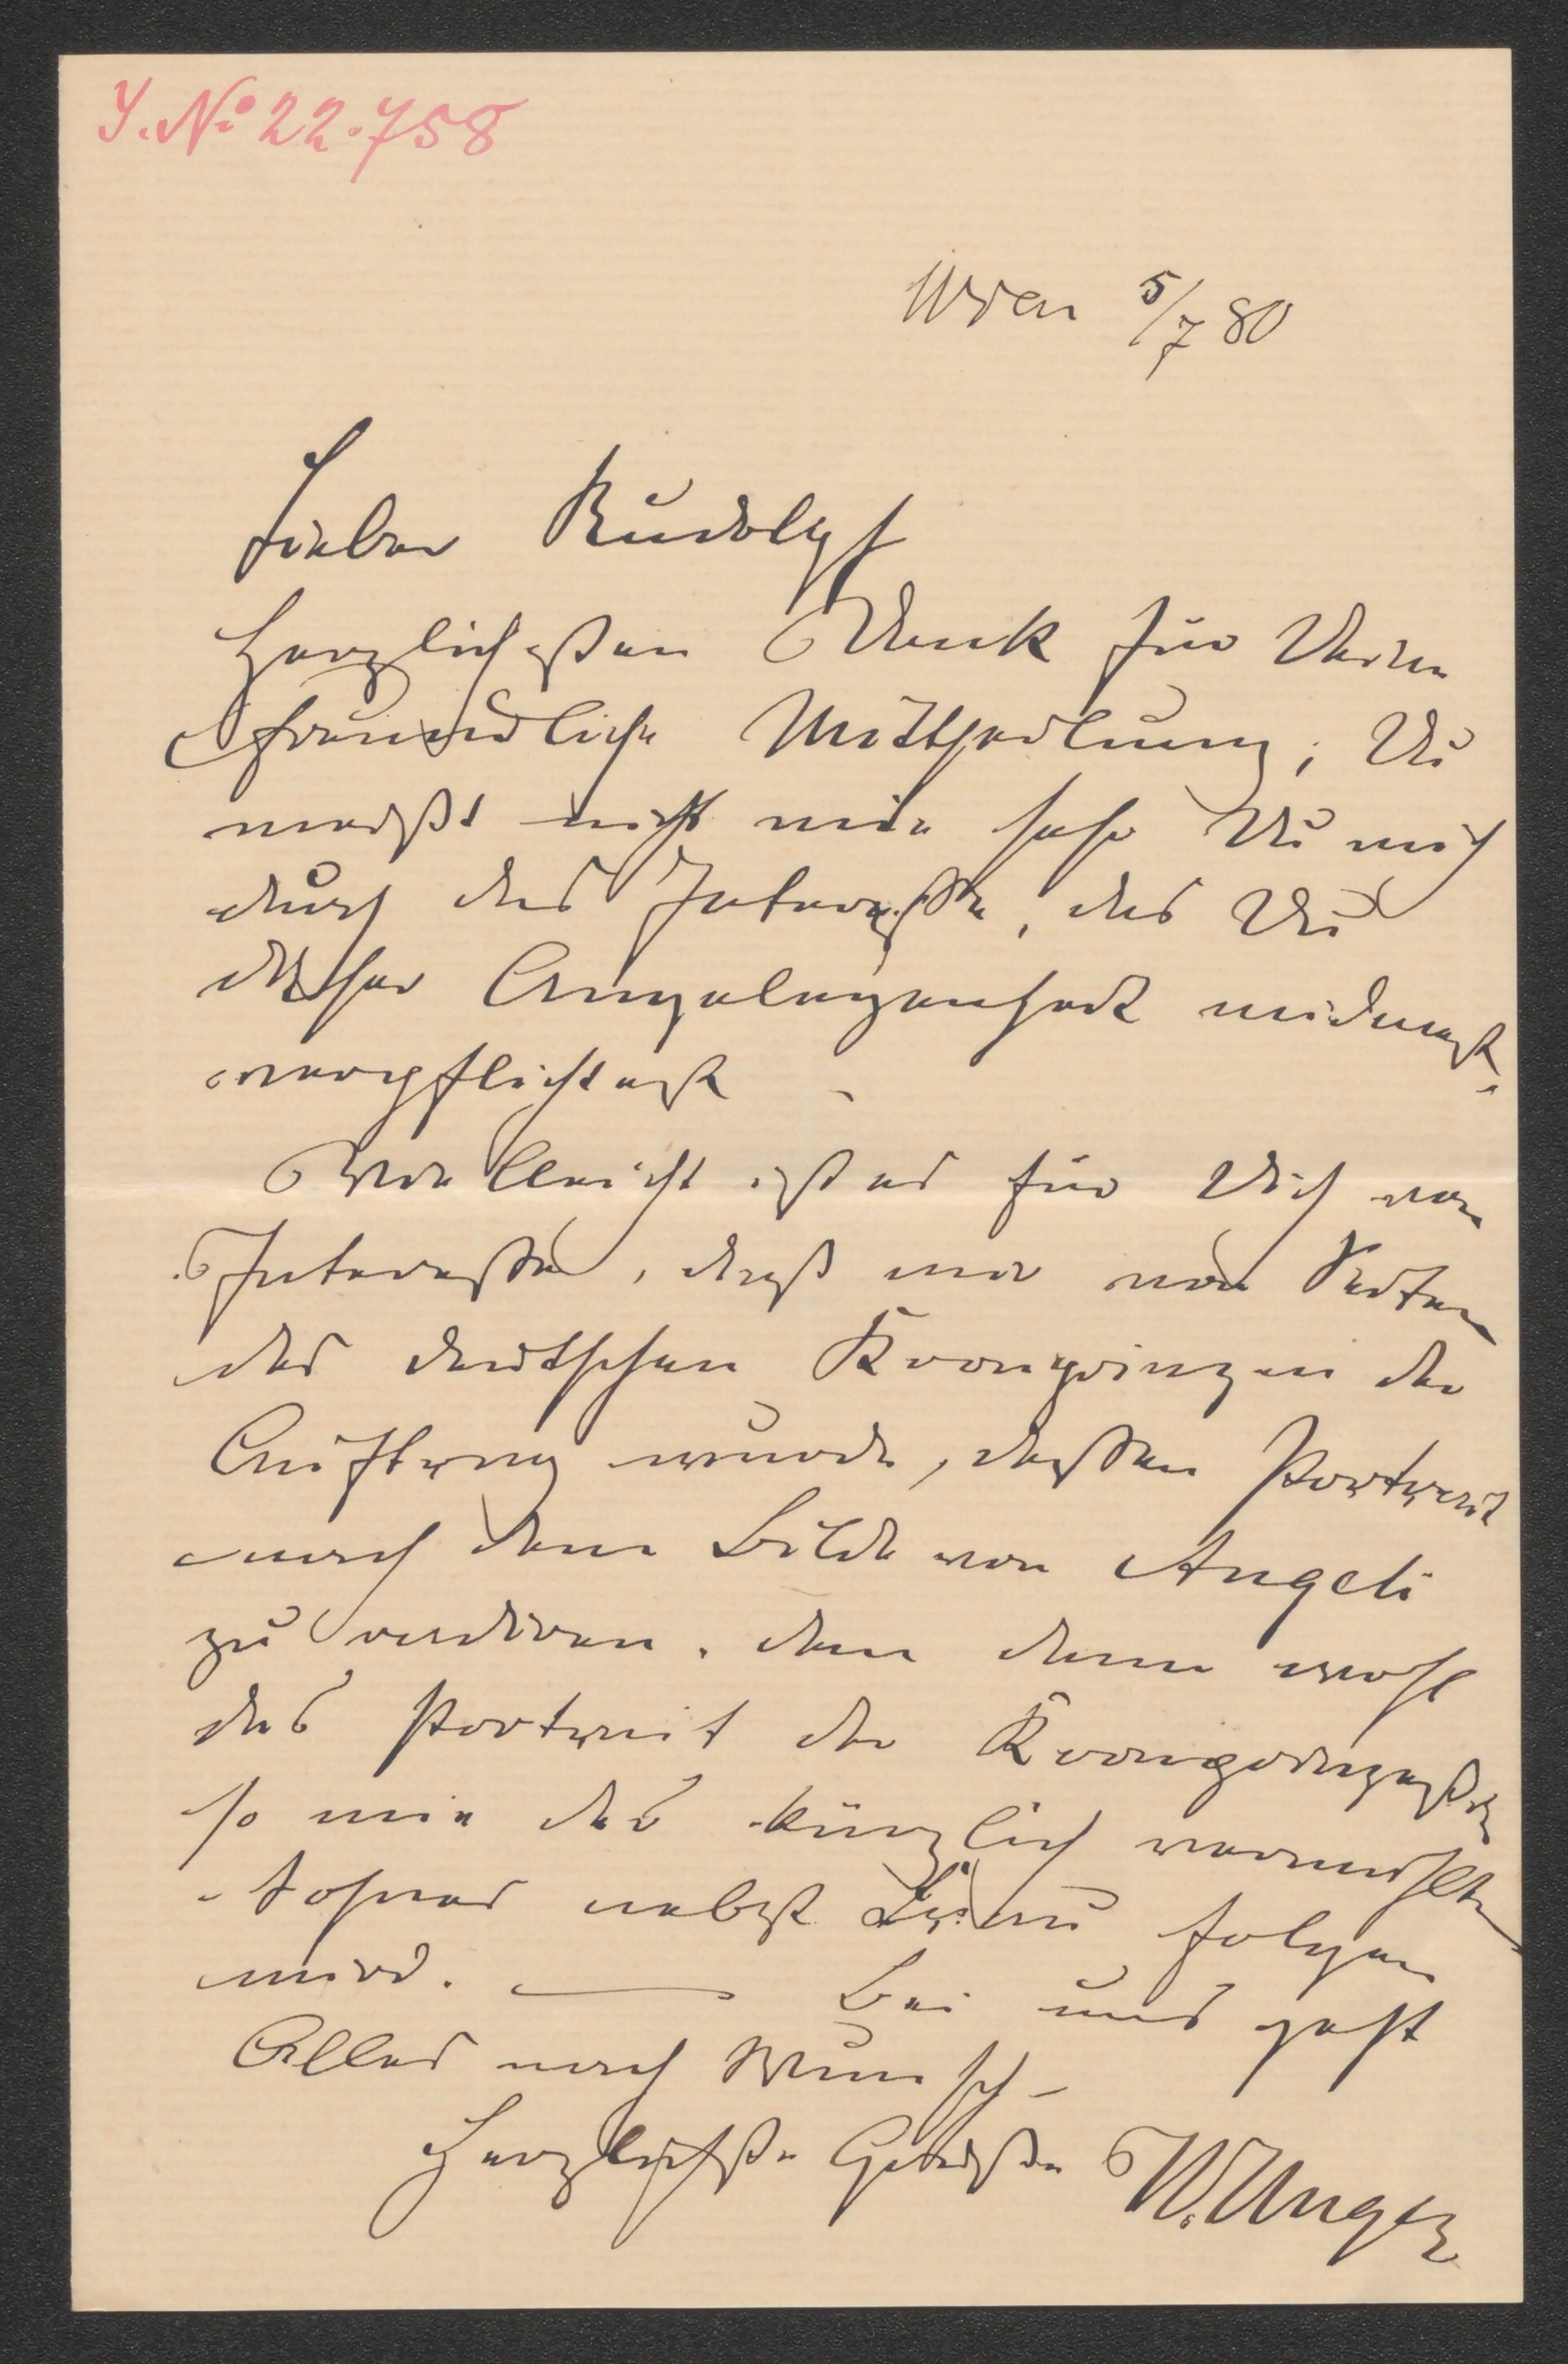 J. No 22.758
Wien 5/7 80
Lieber Rudolph
Herzlichesten Dank für Deine
freundliche Mittheilung; Du
weißt nicht wie sehr Du mich
durch das Interesse, das Du
dieser Angelegenheit widmest,
verpflichtest –
Vielleicht ist es für Dich von
Interesse, daß mir von Seiten
des deutschen Kronprinzen der
Auftrag wurde, dessen Portrait
nach dem Bilde von Angeli
zu radiren, dem dann wohl
das Portrait der Kronprinzessin
so wie des kürzlich vermählten
Sohnes nebst Frau folgen
wird. — Bei uns geht
Alles nach Wunsch –
Herzlichste Grüße W. Unger